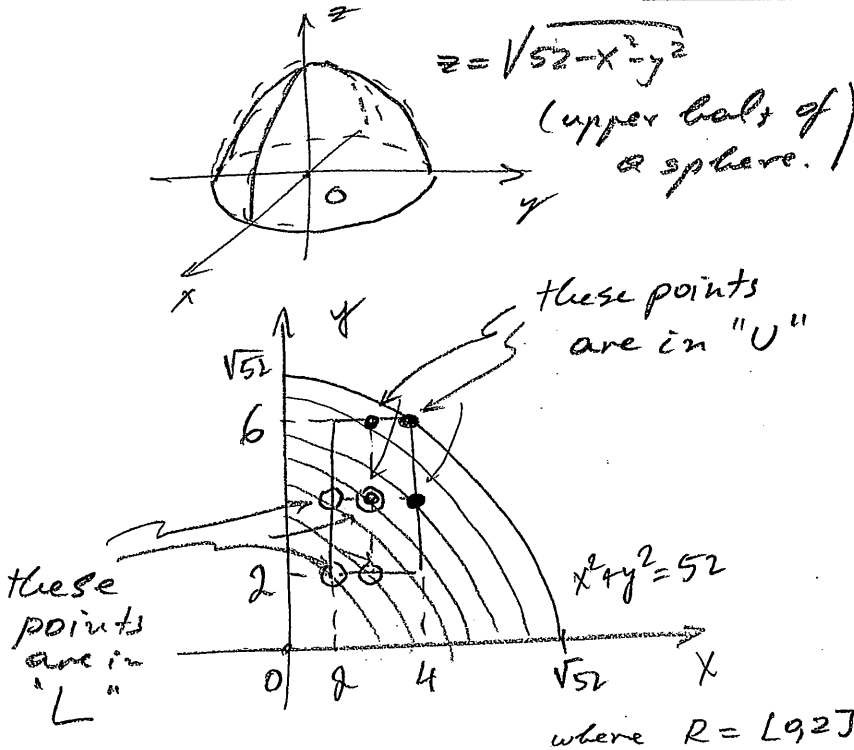 z
z=√52-x²-y²
(upper half of
a sphere.)
O
y
x
y
these points
are in "U"
√52
6
2
x²+y²=52
these
points
are in
"L"
0 2 4 √52 X
where R = [0,2]